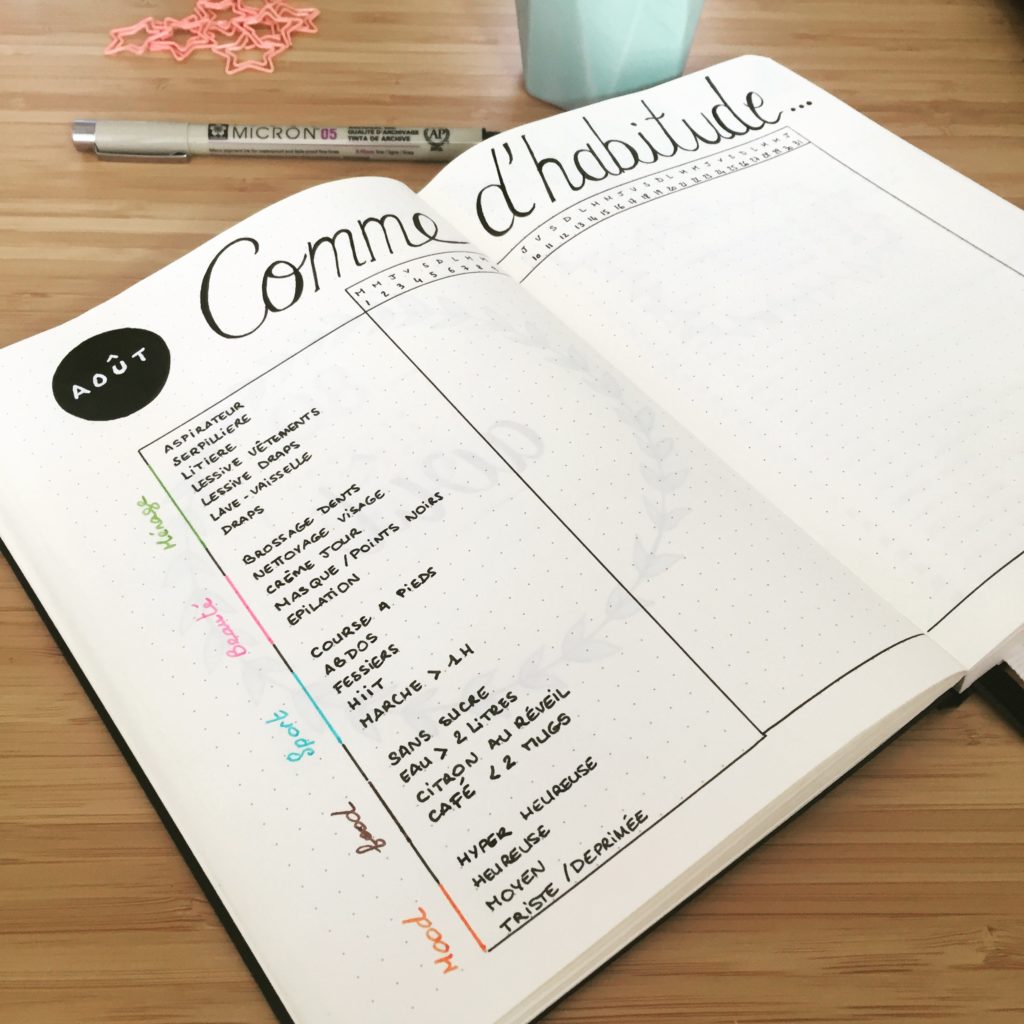 MICRON 05
QUALITÉ D'ARCHIVAGE
TINTA DE ARCHIVE
AP
Comme d'habitude...
AOÛT
M M J V S D L M
1 2 3 4 5 6 7 8
J V S D L M M J V S D L M M J V S D L M M J
10 11 12 13 14 15 16 17 18 19 20 21 22 23 24 25 26 27 28 29 30 31
Ménage
ASPIRATEUR
SERPILLIERE
LITIERE
LESSIVE VÊTEMENTS
LESSIVE DRAPS
LAVE-VAISSELLE
DRAPS
Beauté
BROSSAGE DENTS
NETTOYAGE VISAGE
CRÈME JOUR
MASQUE/POINTS NOIRS
EPILATION
Sport
COURSE A PIEDS
ABDOS
FESSIERS
HIIT
MARCHE > 1H
food
SANS SUCRE
EAU > 2 LITRES
CITRON AU RÉVEIL
CAFÉ < 2 MUGS
Mood
HYPER HEUREUSE
HEUREUSE
MOYEN
TRISTE/DEPRIMÉE